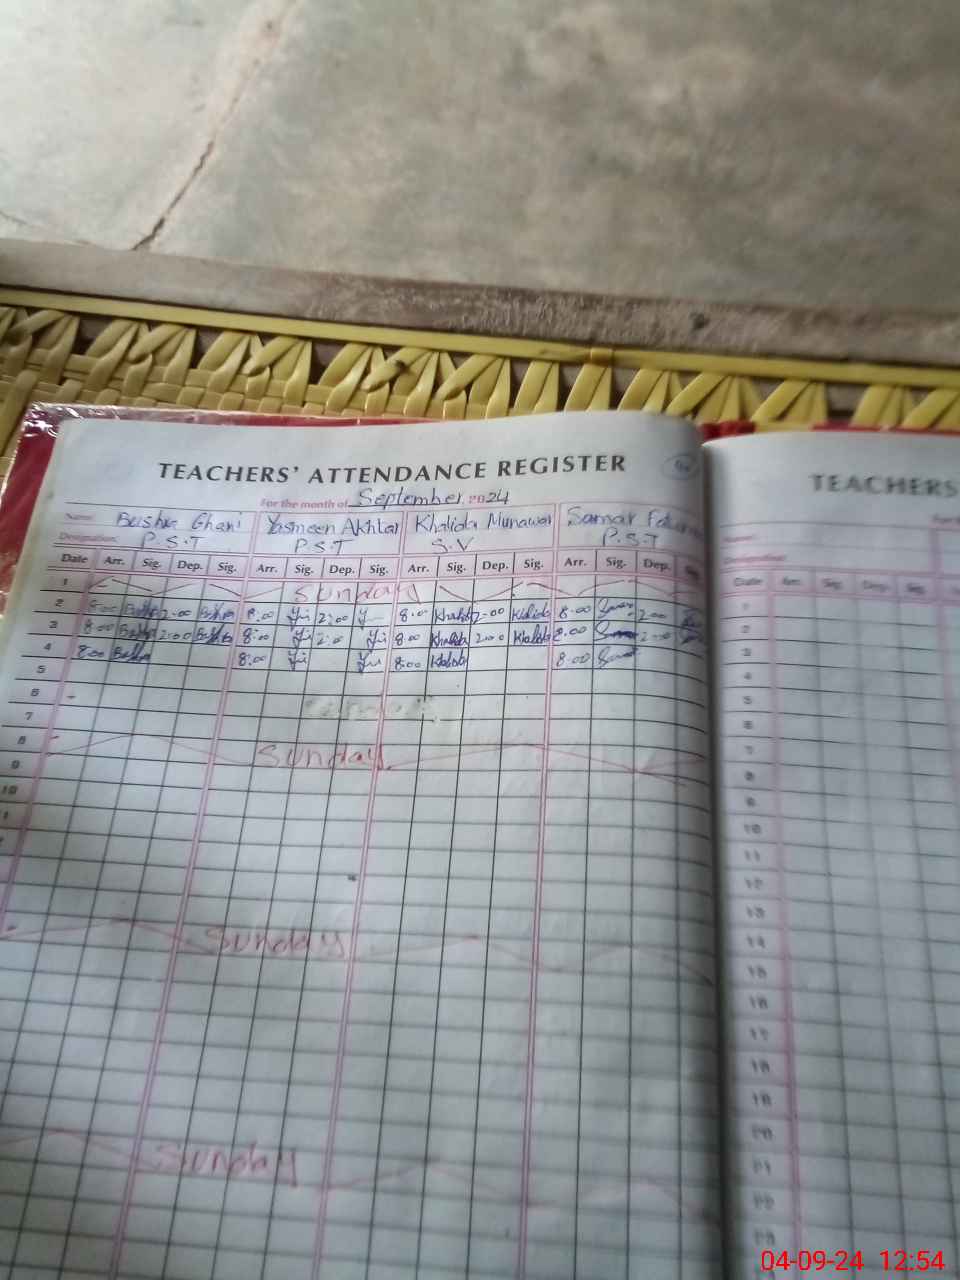 TEACHERS' ATTENDANCE REGISTER
For the month of September 2024
Name: Bushra Ghani Yasmeen Akhtar Khalida Munawar Samar
Designation: P.S.T P.S.T S.V P.S.T
Date Arr. Sig. Dep. Sig. Arr. Sig. Dep. Sig. Arr. Sig. Dep. Sig. Arr. Sig. Dep.
1 Sunday
2 8:00 Bushra 2:00 Bushra 8:00 2:00 8:00 Khalida 2:00 Khalida 8:00 2:00
3 8:00 Bushra 2:00 Bushra 8:00 2:00 8:00 Khalida 2:00 Khalida 8:00 2:00
4 8:00 Bushra 8:00 8:00 Khalida 8:00
5
6
7
8 Sunday
9
10
Sunday
Sunday
TEACHERS
Date Arr. Sig. Dep. Sig.
1
2
3
4
5
6
7
8
9
10
11
12
13
14
15
16
17
18
19
20
21
22
23
04-09-24 12:54